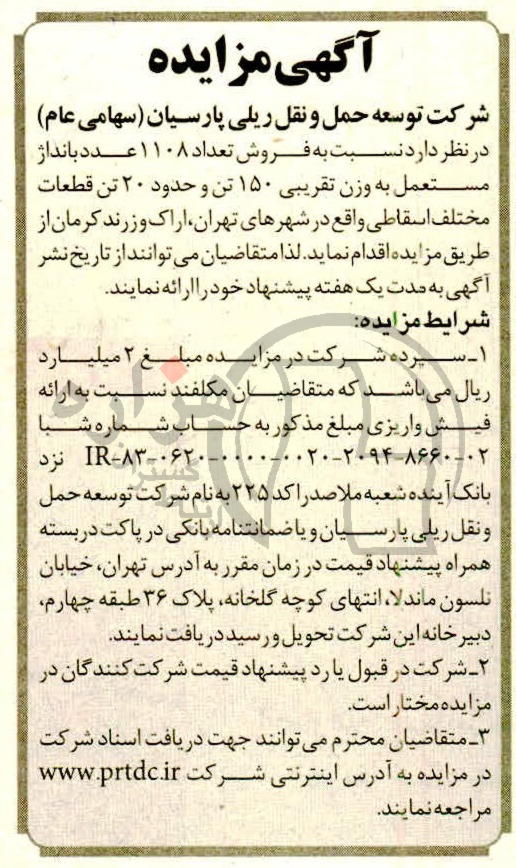 آگهی مزایده
شرکت توسعه حمل و نقل ریلی پارسیان (سهامی عام)
در نظر دارد نسبت به فروش تعداد ۱۱۰۸ عدد بانداژ
مستعمل به وزن تقریبی ۱۵۰ تن و حدود ۲۰ تن قطعات
مختلف اسقاطی واقع در شهرهای تهران، اراک و زرند کرمان از
طریق مزایده اقدام نماید. لذا متقاضیان می‌توانند از تاریخ نشر
آگهی به مدت یک هفته پیشنهاد خود را ارائه نمایند.
شرایط مزایده:
۱ـ سپرده شرکت در مزایده مبلغ ۲ میلیارد
ریال می‌باشد که متقاضیان مکلفند نسبت به ارائه
فیش واریزی مبلغ مذکور به حساب شماره شبا
IR-۸۳-۰۶۲۰-۰۰۰۰-۰۰۲۰-۲۰۹۴-۸۶۶۰-۰۲ نزد
بانک آینده شعبه ملاصدرا کد ۲۲۵ به نام شرکت توسعه حمل
و نقل ریلی پارسیان و یا ضمانتنامه بانکی در پاکت دربسته
همراه پیشنهاد قیمت در زمان مقرر به آدرس تهران، خیابان
نلسون ماندلا، انتهای کوچه گلخانه، پلاک ۳۶ طبقه چهارم،
دبیرخانه این شرکت تحویل و رسید دریافت نمایند.
۲ـ شرکت در قبول یا رد پیشنهاد قیمت شرکت کنندگان در
مزایده مختار است.
۳ـ متقاضیان محترم می‌توانند جهت دریافت اسناد شرکت
در مزایده به آدرس اینترنتی شرکت www.prtdc.ir
مراجعه نمایند.
هزاره